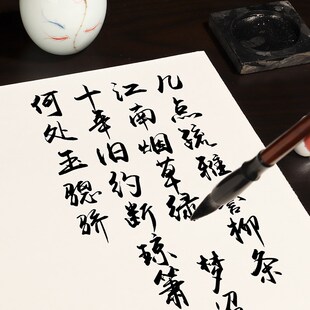 几点疏雅柳条
江南烟草绿梦
十年旧约断琼箫
何处玉骢骄